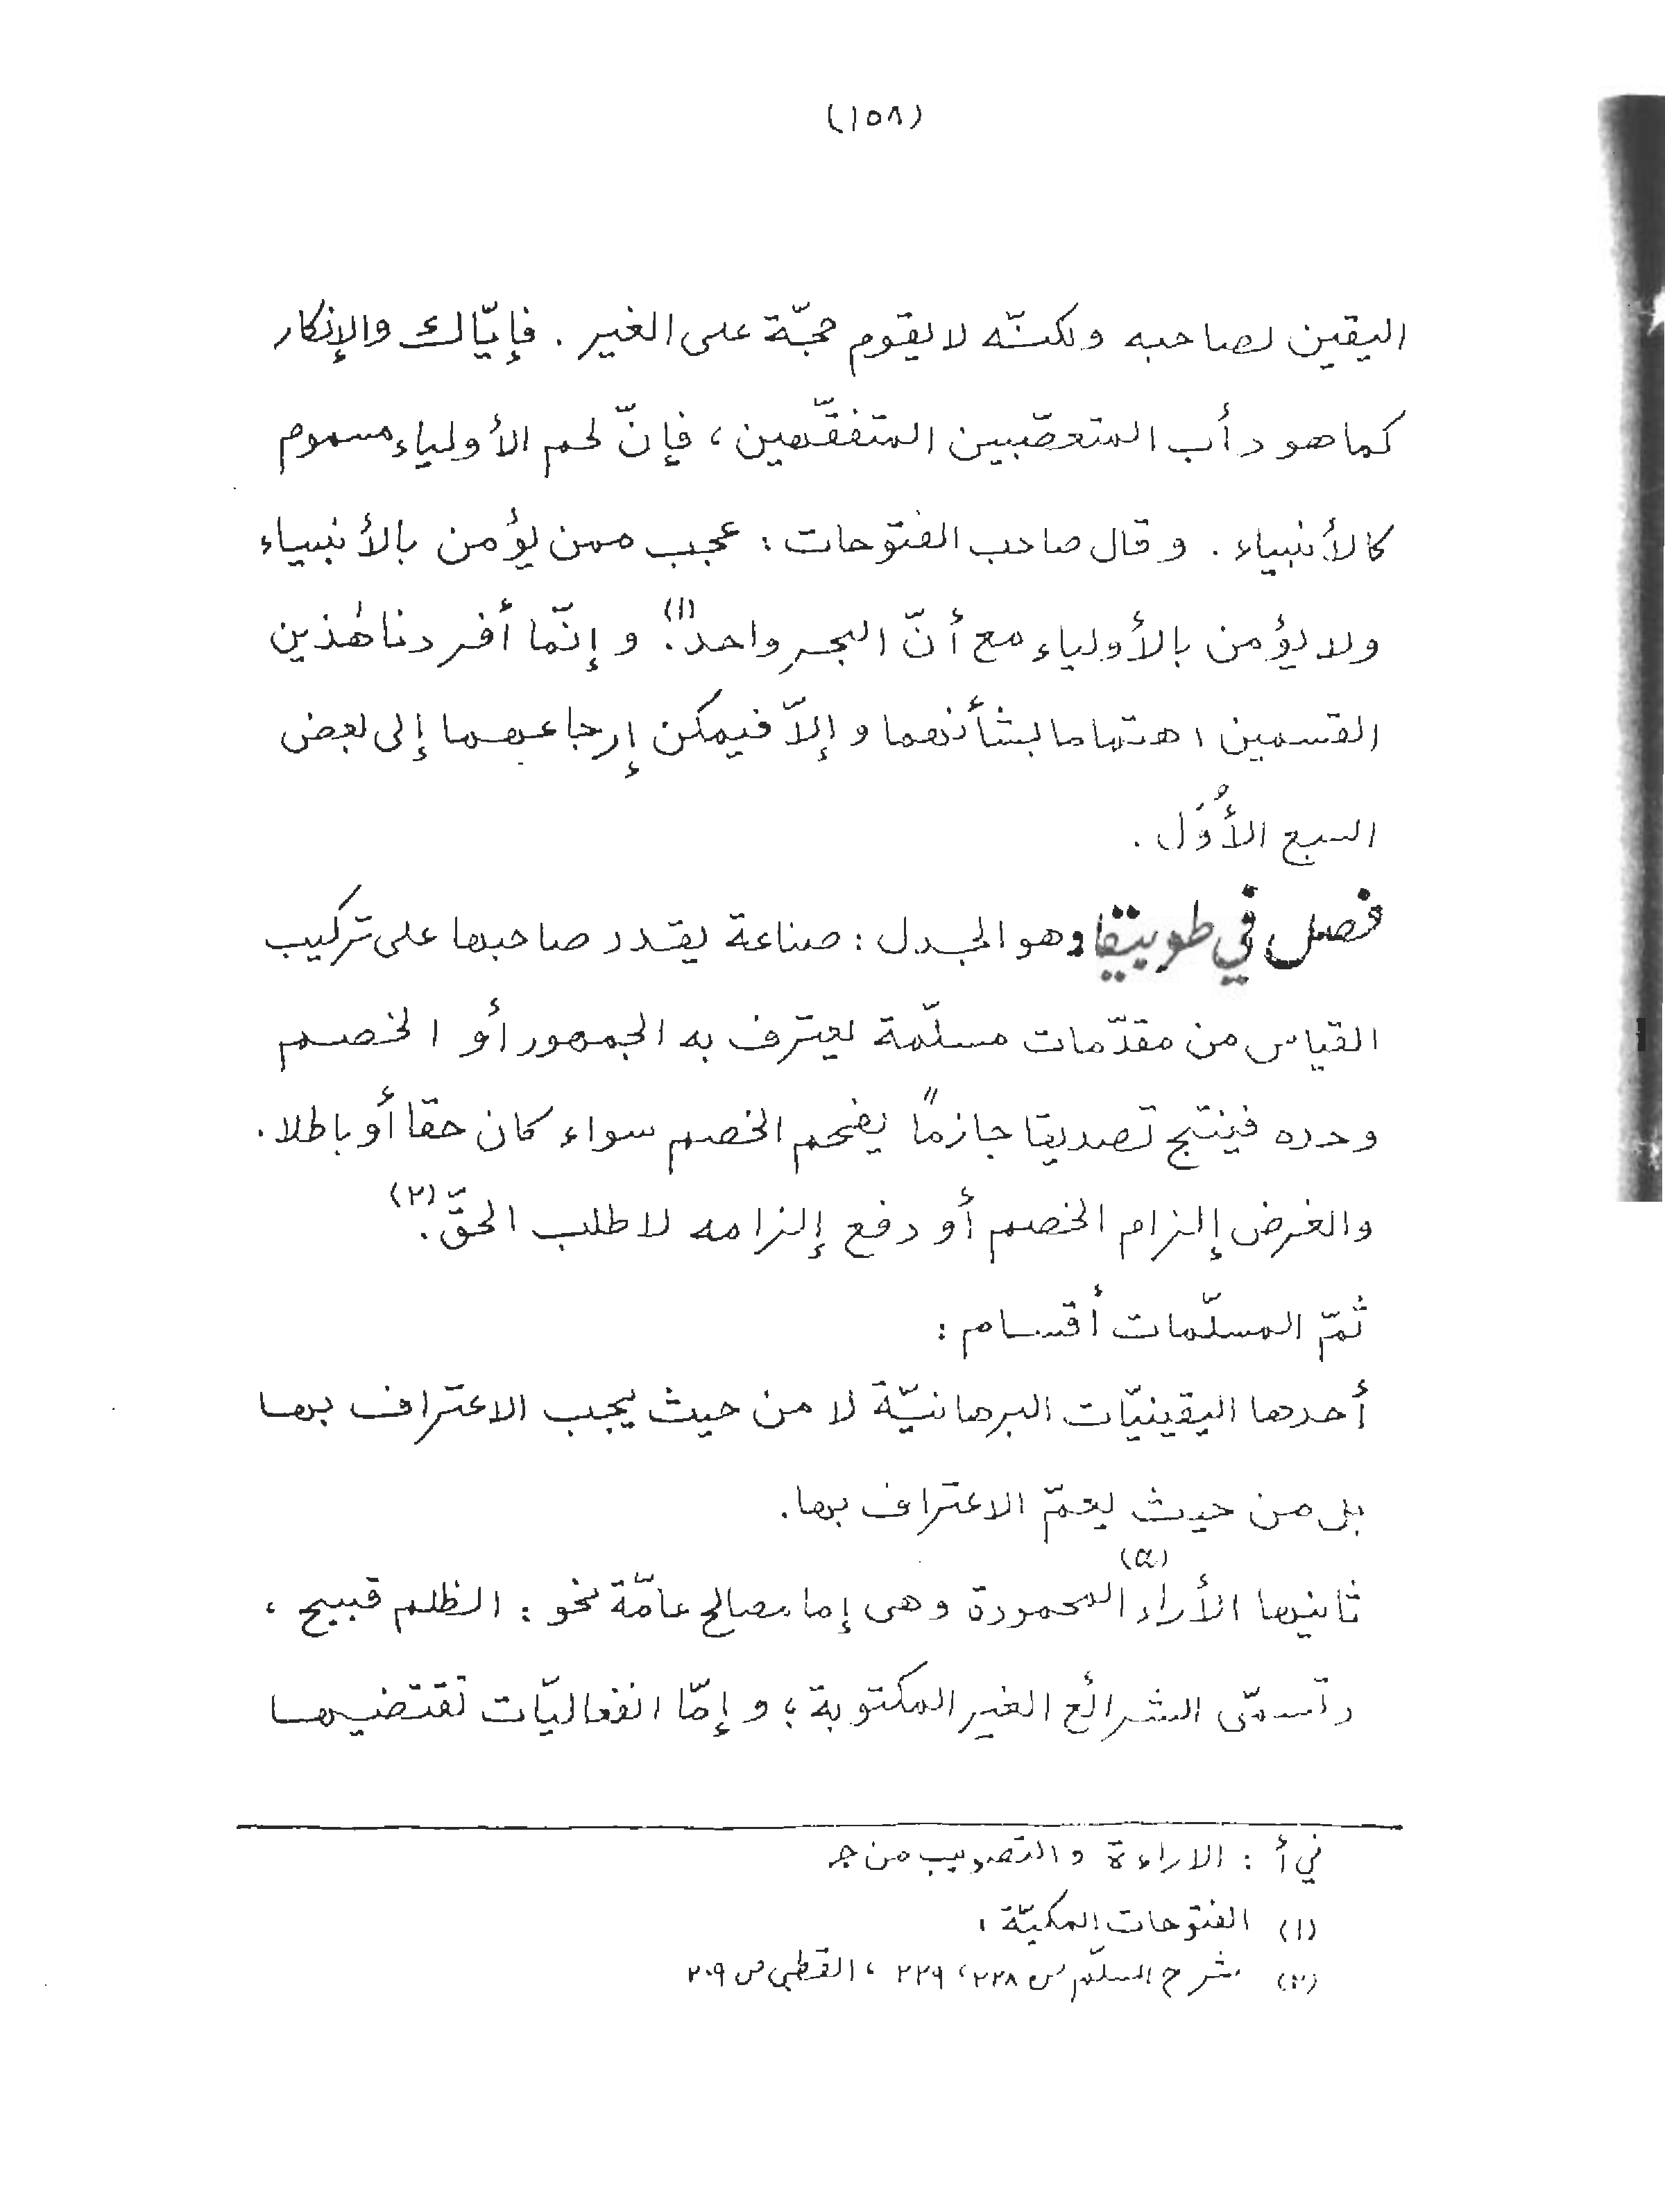 (١٥٨)
اليقين لصاحبه ولكنّه لا يقوم حجّة على الغير . فإيّاك والإنكار
كما هو دأب المتعصّبين المتفقّهين ، فإنّ لحم الأولياء مسموم
كالأنبياء . وقال صاحب الفتوحات : عجب ممن يؤمن بالأنبياء
ولا يؤمن بالأولياء مع أنّ البحر واحد (١). وإنّما أفردنا هٰذين
القسمين اهتماما بشأنهما وإلاّ فيمكن إرجاعهما إلى بعض
السبع الأُوَل .
فصل في طوبيقا وهو الجدل : صناعة يقدر صاحبها على تركيب
القياس من مقدّمات مسلّمة يعترف به الجمهور أو الخصم
وحده فينتج تصديقا جازمًا يفحم الخصم سواء كان حقا أو باطلا .
والغرض إلزام الخصم أو دفع إلزامه لا طلب الحقّ (٢).
ثمّ المسلّمات أقسام :
أحدها اليقينيّات البرهانيّة لا من حيث يجب الاعتراف بها
بل من حيث يعمّ الاعتراف بها .
ثانيها الأراء (a) المحمودة وهى إما مصالح عامّة نحو : الظلم قبيح ،
وتسمّى الشرائع الغير المكتوبة ؛ وإمّا انفعاليّات تقتضيها
في أ : الاراءة والتصويب من جـ
(١) الفتوحات المكيّة ،
(٢) شرح السلّم ص ٢٢٨ ، ٢٢٩ ، القطبي ص ٢٠٩